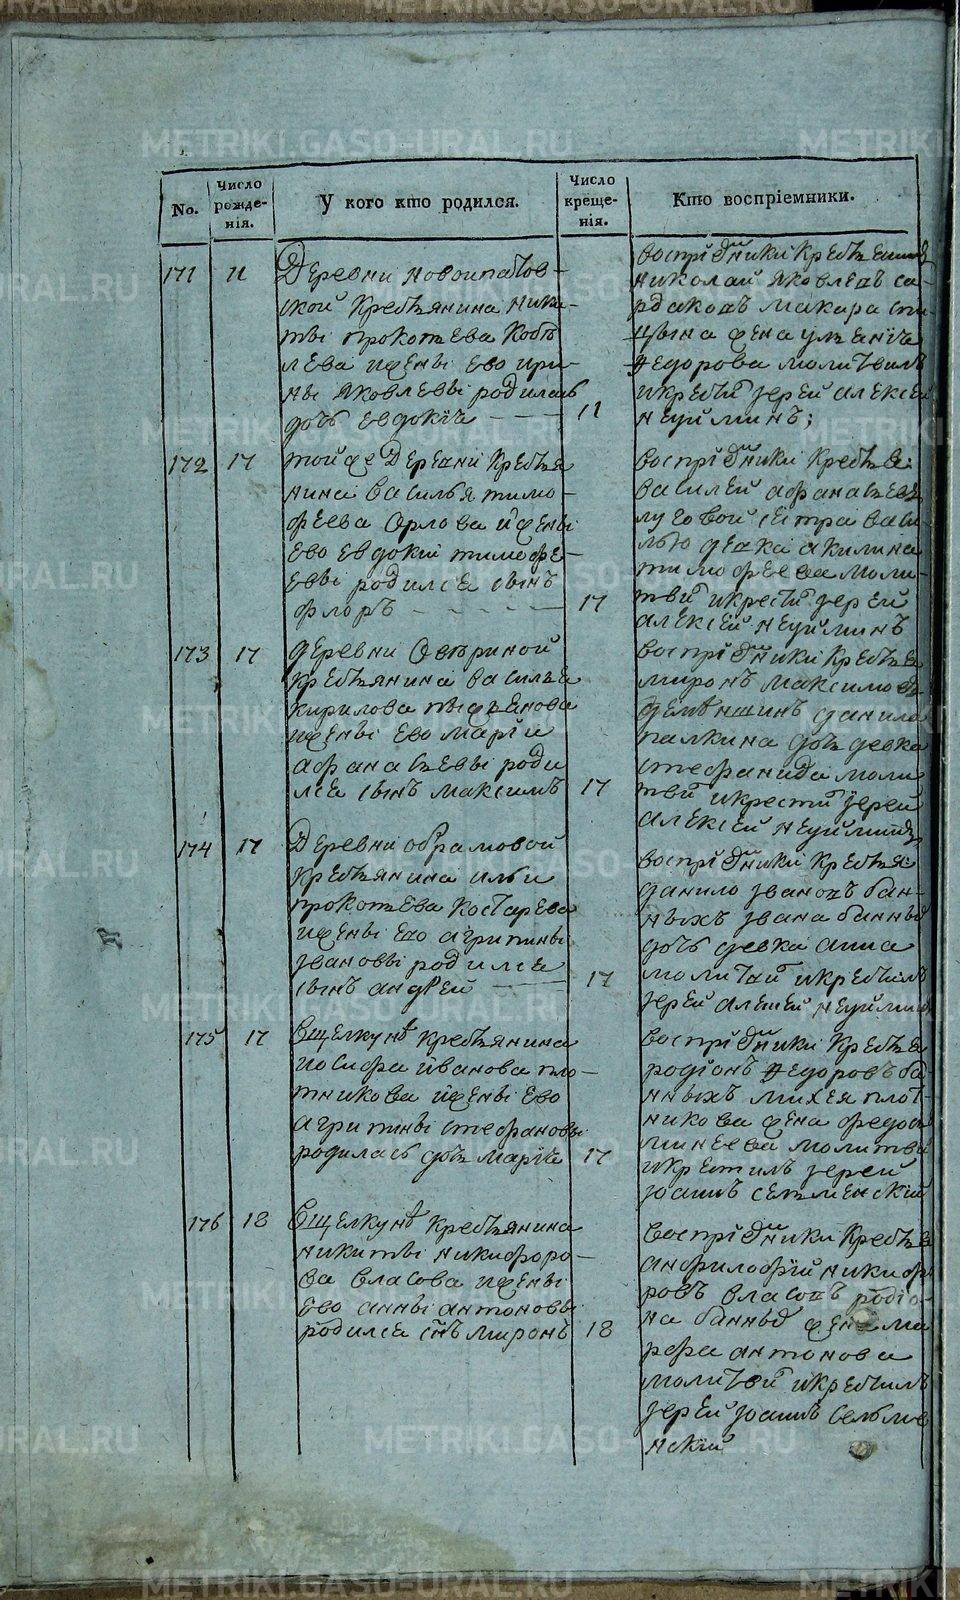 METRIKI.GASO-URAL.RU
No.
Число рожде-нія.
У кого кто родился.
Число креще-нія.
Кто воспріемники.
171 11
Деревни новоипатов-
ской крестьянина ники-
ты прокопьева кобе
лева иżены ево ири-
ны яковлевы родилась
дочь евдокия 11
воспрiемники крестьянинъ
николай яковлевъ са-
рдаковъ макара
жена
федорова молитвилъ
икрестилъ iерей алексей
неуйминъ;
172 17
тойже деревни крестья
нина василья тимо-
феева орлова иженьі
ево евдокии тимофе-
евы родился сынъ
флоръ 17
воспрiемники крестья
василей афанасьевъ
луговой сестра васи-
лью девка акилина
тимофеева моли-
тви икрести iерей
алексей неуйминъ
173 17
деревни
крестьянина василья
кирилова
иженьі ево марiи
афанасьевы роди
лся сынъ максимъ 17
воспрiемники крестья
миронъ максимовъ
данила
палкина дочь девка
стефанида моли
тви икрести iерей
алексей неуйминъ
174 17
Деревни обрамовой
крестьянина ильи
прокопьева костарева
иженьі ево агрипины
iвановы родился
сынъ андрей 17
воспрiемники крестья
данило iвановъ бан-
ныхъ iвана банных
дочь девка анна
молитви икрестилъ
iерей алексей неуйминъ
175 17
вщелкунѣ крестьянина
иосифа иванова пло-
тникова иженьі ево
агрипины стефановы
родилась дочь марiя 17
воспрiемники крестья
родiонъ федоровъ ба
нныхъ михея плот-
никова жена федосья
минеева молитви
икрестилъ iерей
iоаннъ селменскiй
176 18
вщелкунѣ крестьянина
никиты никифоро-
ва власова иженьі
ево анны антоновы
родился снъ миронъ 18
воспрiемники крестья
анфилофiй никифо
ровъ власовъ родiо-
на банных жена ма
рфа антонова
молитви икрестилъ
iерей iоаннъ сельме
нскiй